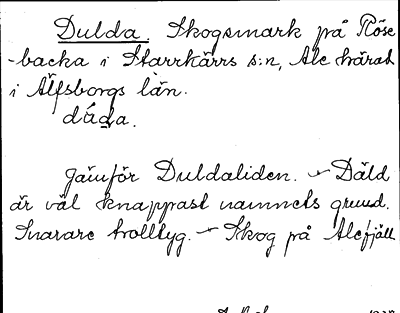 Dulda. Skogsmark på Röse
-backa i Starrkärrs s:n, Ale härad
i Älfsborgs län.
dúda.
Jämför Duldaliden. - Däld
är väl knappast namnets grund.
Snarare trolltyg. - Skog på Alefjäll